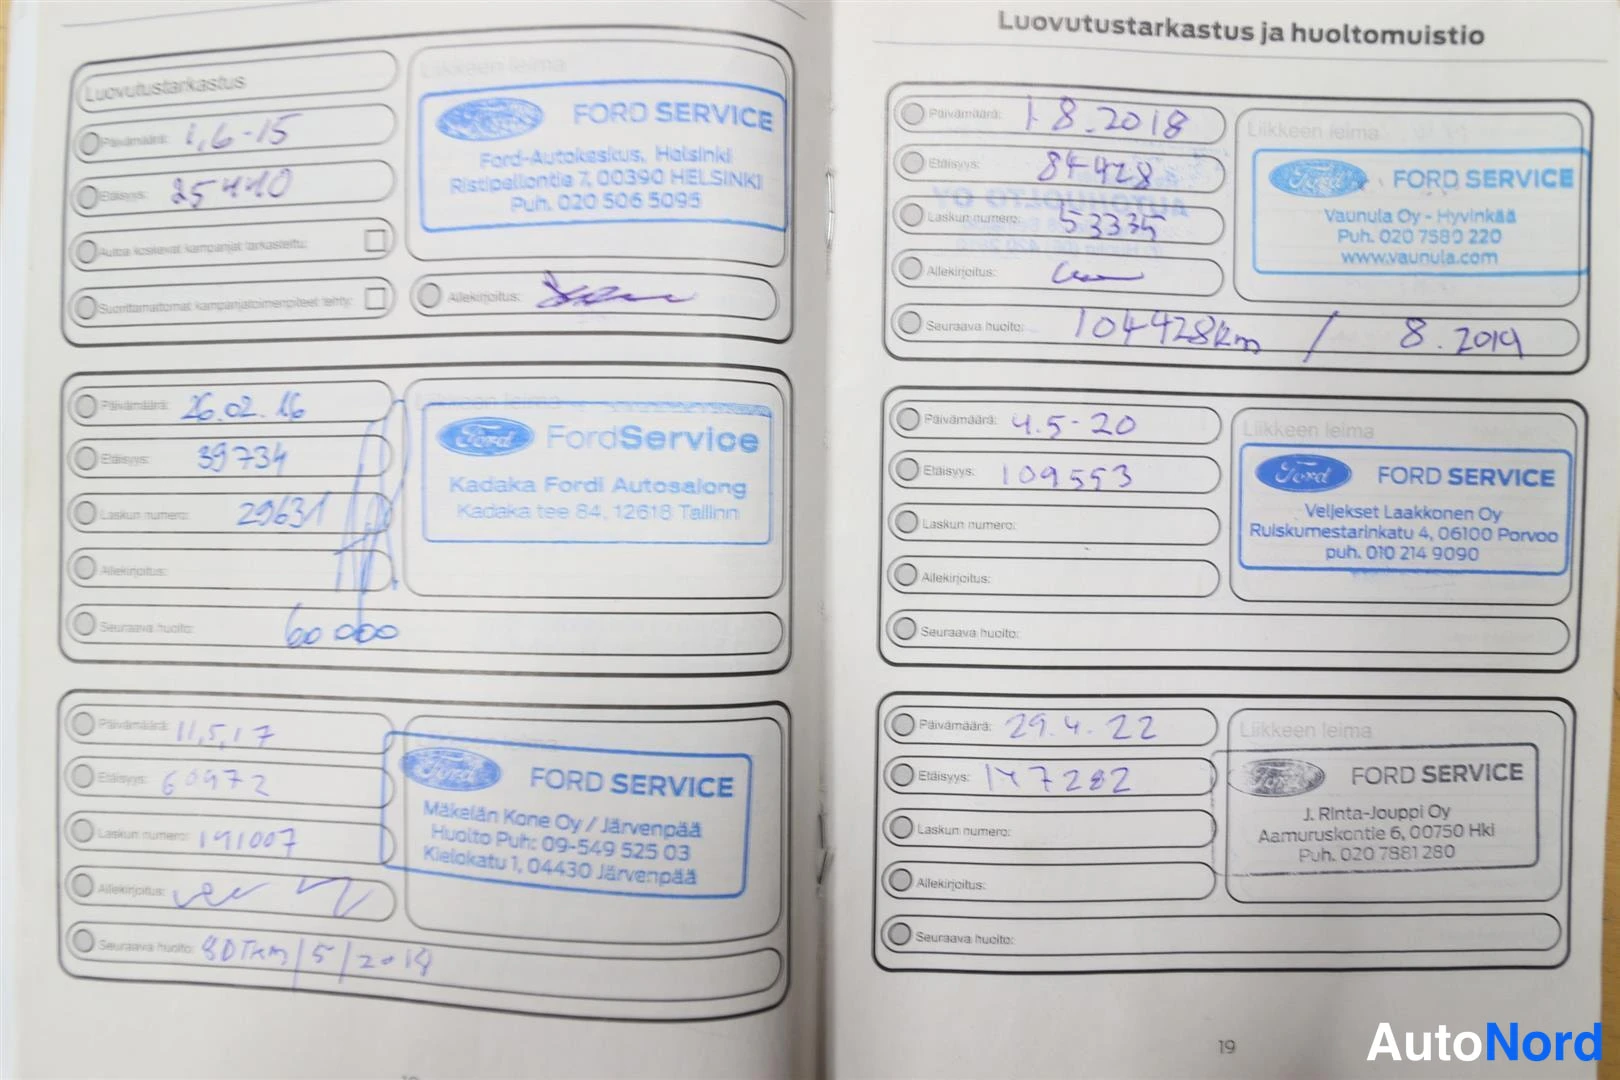 Luovutustarkastus
Päivämäärä: 1,6-15
Etäisyys: 25440
Autoa koskevat kampanjat tarkastettu:
Suorittamattomat kampanjatoimenpiteet tehty:
Liikkeen leima
Ford FORD SERVICE
Ford-Autokeskus, Helsinki
Ristipellontie 7, 00390 HELSINKI
Puh. 020 506 5095
Allekirjoitus:
Päivämäärä: 26.02.16
Etäisyys: 39734
Laskun numero: 29631
Allekirjoitus:
Seuraava huolto: 60 000
Liikkeen leima
Ford FordService
Kadaka Fordi Autosalong
Kadaka tee 84, 12618 Tallinn
Päivämäärä: 11,5,17
Etäisyys: 60972
Laskun numero: 191007
Allekirjoitus:
Seuraava huolto: 80TKM/5/2018
Ford FORD SERVICE
Mäkelän Kone Oy / Järvenpää
Huolto Puh: 09-549 525 03
Kielokatu 1, 04430 Järvenpää
Luovutustarkastus ja huoltomuistio
Päivämäärä: 1.8.2018
Etäisyys: 84428
Laskun numero: 53335
Allekirjoitus:
Seuraava huolto: 104428km / 8.2019
Liikkeen leima
Ford FORD SERVICE
Vaunula Oy - Hyvinkää
Puh. 020 7580 220
www.vaunula.com
Päivämäärä: 4.5-20
Etäisyys: 109553
Laskun numero:
Allekirjoitus:
Seuraava huolto:
Liikkeen leima
Ford FORD SERVICE
Veljekset Laakkonen Oy
Ruiskumestarinkatu 4, 06100 Porvoo
puh. 010 214 9090
Päivämäärä: 29.4.22
Etäisyys: 147282
Laskun numero:
Allekirjoitus:
Seuraava huolto:
Liikkeen leima
Ford FORD SERVICE
J. Rinta-Jouppi Oy
Aamuruskontie 6, 00750 Hki
Puh. 020 7881 280
19
AutoNord